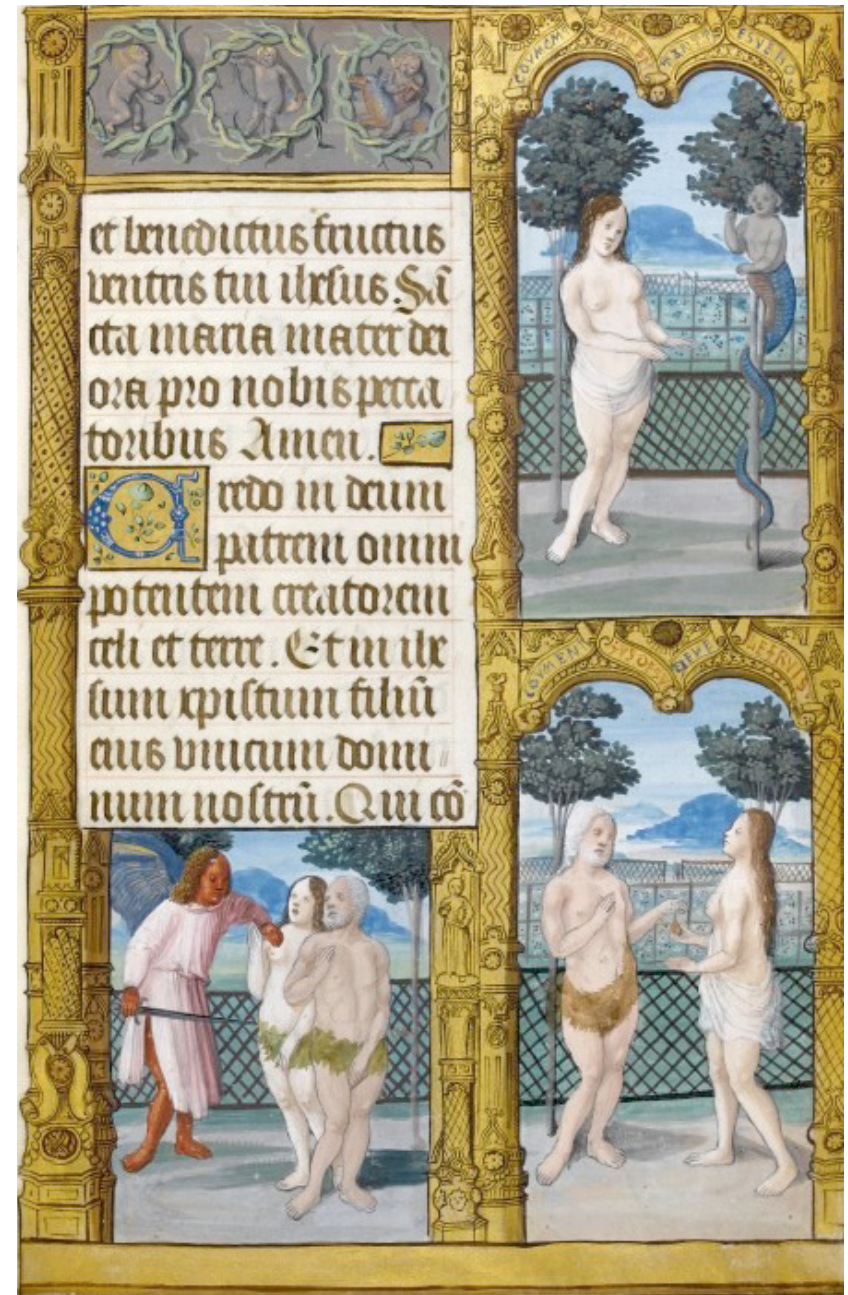 et benedictus fructus
ventris tui ihesus. Sã
cta maria mater dei
ora pro nobis pecca
toribus Amen.
Credo in deum
patrem omni
potentem creatorem
celi et terre. Et in ihe
sum xpistum filiũ
eius vnicum domi
num nostrũ. Qui cõ
COVMENT